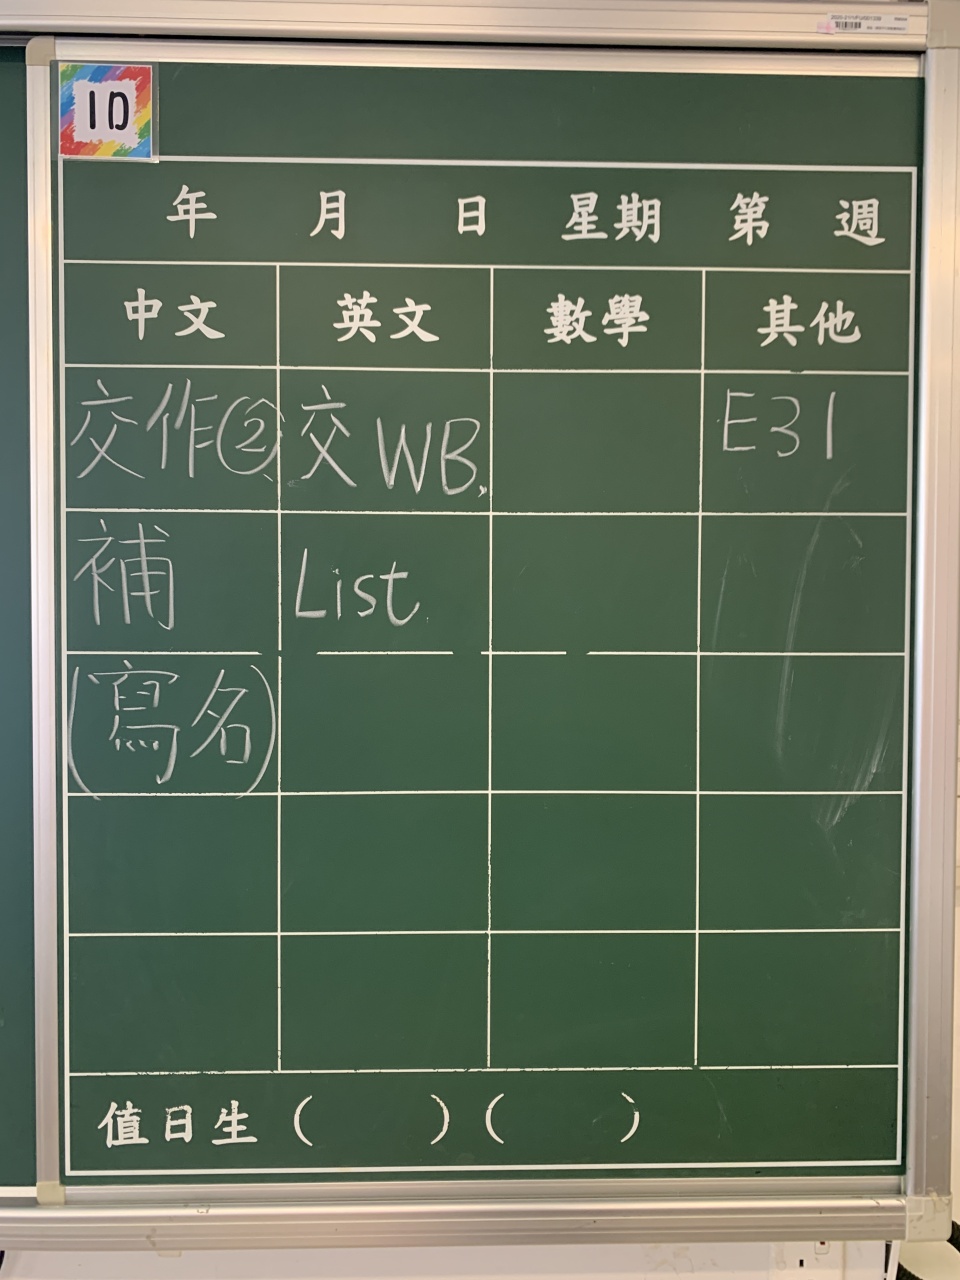 1D
年 月 日 星期 第 週
中文 英文 數學 其他
交作② 交 WB, E31
補 List
(寫名)
值日生 ( ) ( )